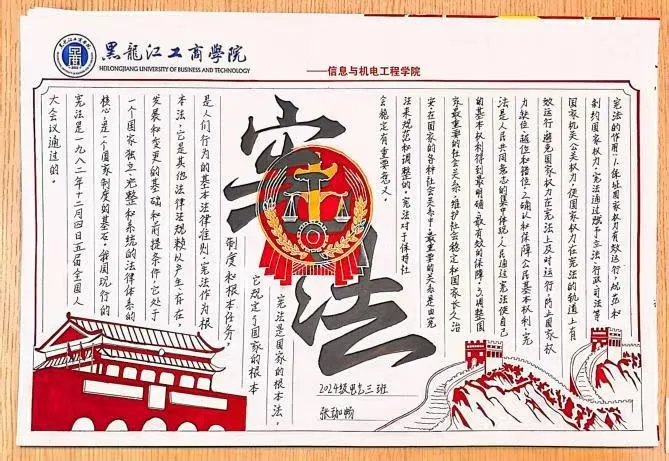 黑龍江工商學院
HEILONGJIANG UNIVERSITY OF BUSINESS AND TECHNOLOGY
——信息与机电工程学院
宪法
宪法的作用:1.保证国家权力有效运行,规范和
制约国家权力,宪法通过赋予立法、行政、司法等
国家机关公共权力,使国家权力在宪法的轨道上有
效运行,避免国家权力在宪法上及时运行,防止国家权
力缺位、越位和错位。2.确认和保障公民基本权利,宪
法是人民共同意志的集中体现,人民通过宪法使自己
的基本权利得到最明确、最有效的保障。3.调整国
家最重要的社会关系,维护社会稳定和国家长久治
安,在国家的各种社会关系中,最重要的关系是由宪
法来规范和调整的,宪法对于保持社
会稳定有重要意义。
宪法是国家的根本法,
它规定了国家的根本
制度和根本任务,
是人们行为的基本法律准则。宪法作为根
本法,它是其他法律法规赖以产生、存在、
发展和变更的基础和前提条件,它处于
一个国家独立、完整和系统的法律体系的
核心,是一个国家制度的基石。我国现行的
宪法是一九八二年十二月四日五届全国人
大会议通过的。
2024级电气三班